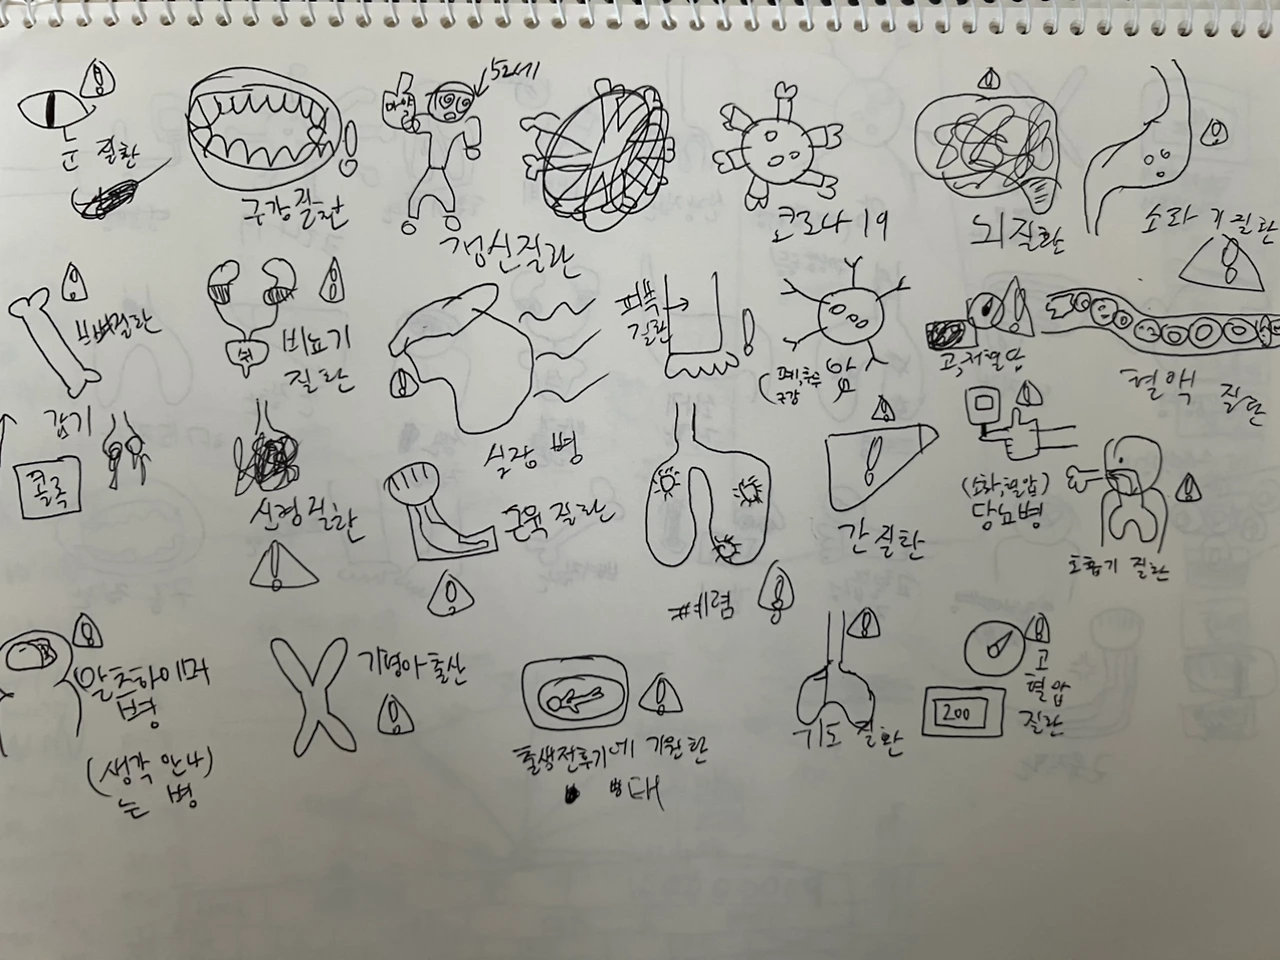 눈 질환
구강질환
마약
52세
갱신질환
코로나 19
뇌질환
소화기질환
뼈질환
비뇨기
질환
심장 병
피푹
질환
암
고,저혈압
혈액 질환
감기
콜록
신경질환
근육 질환
폐렴
간 질환
(소화,혈압)
당뇨병
호흡기 질환
알츠하이머
병
(생각 안나)
는 병
기형아 출산
출생전후기에 기원한
병태
기도 질환
200
고
혈압
질환